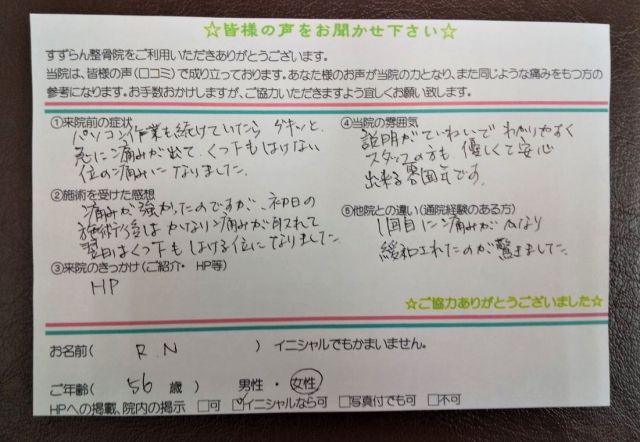 ☆皆様の声をお聞かせ下さい☆
すずらん整骨院をご利用いただきありがとうございます。
当院は、皆様の声(口コミ)で成り立っております。あなた様のお声が当院の力となり、また同じような痛みをもつ方の
参考になります。お手数おかけしますが、ご協力いただきますよう宜しくお願い致します。
①来院前の症状
パソコン作業も続けていたら ギキッと、
急に痛みが出て、くつ下もはけない
位の痛みになりました。
②施術を受けた感想
痛みが強かったのですが、初日の
施術後はかなり痛みが取れて
翌日はくつ下もはける位になりました。
③来院のきっかけ(ご紹介・ HP等)
HP
④当院の雰囲気
説明がていねいでわかりやすく
スタッフの方も、優しくて安心
出来る雰囲気です。
⑤他院との違い(通院経験のある方)
1回目に痛みがかなり
緩和されたのが驚きました。
☆ご協力ありがとうございました☆
お名前( R.N )イニシャルでもかまいません。
ご年齢( 56 歳 ) 男性 ・ 女性
HPへの掲載、院内の掲示 □可 ☑イニシャルなら可 □写真付でも可 □不可